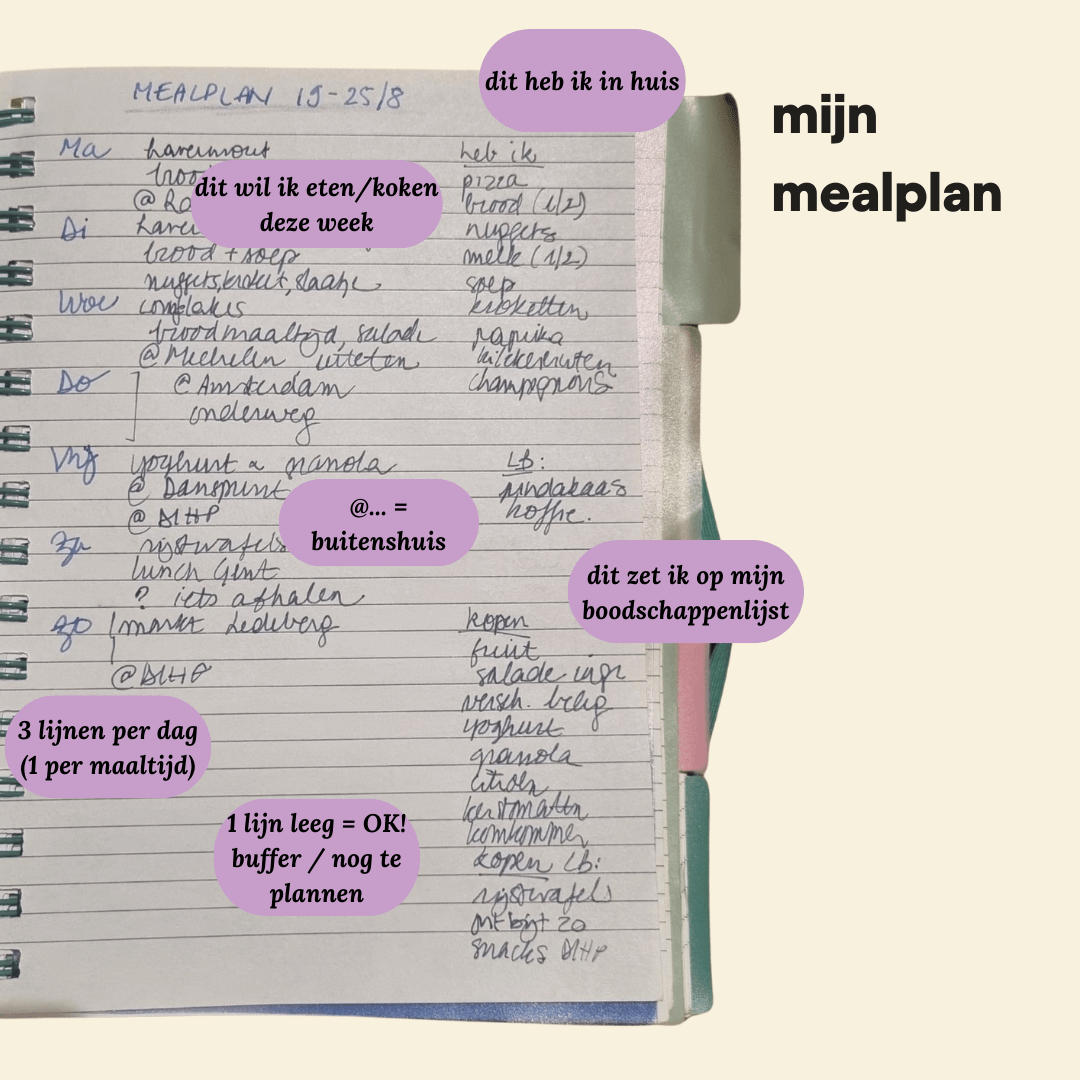 mijn
mealplan
dit heb ik in huis
MEALPLAN 19-25/8
Ma havermout
@
dit wil ik eten/koken
deze week
Di
brood + soep
nuggets, kroket, slaatje
Woe cornflakes
broodmaaltijd, salade
@ Mechelen uiteten
Do @ Amsterdam
onderweg
Vrij yoghurt granola
@
@ BLHP
@... =
buitenshuis
Za rijstwafels
lunch Gent
? iets afhalen
Zo markt Ledeberg
@ BLHP
heb ik
pizza
brood (1/2)
nuggets
melk (1/2)
soep
kroketten
paprika
kikkererwten
champignons
LB:
pindakaas
koffie.
dit zet ik op mijn
boodschappenlijst
kopen
fruit
salade ingr
versch. beleg
yoghurt
granola
citroen
komkommer
kopen LB:
rijstwafels
ontbijt zo
snacks BLHP
3 lijnen per dag
(1 per maaltijd)
1 lijn leeg = OK!
buffer / nog te
plannen